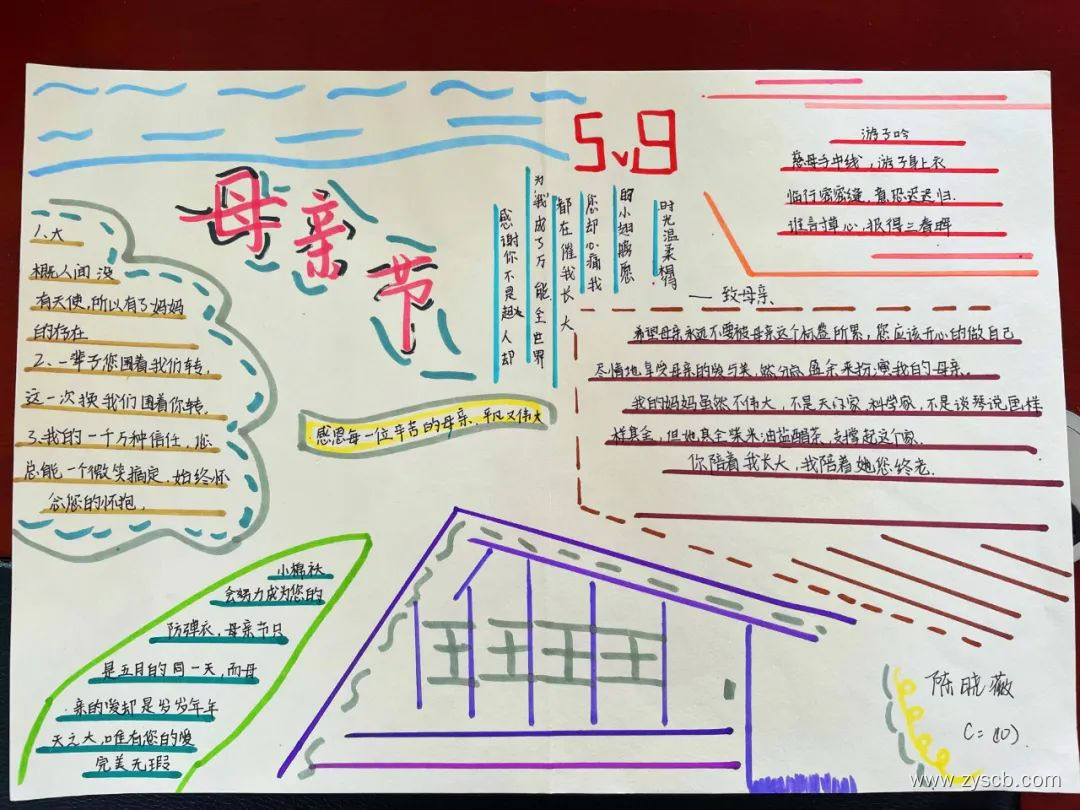 母亲节
5v9
时光温柔楊
的小翅膀愿
您却心痛我
都在催我长大
为我成了万能全世界
感谢你不是超人却
——致母亲
游子吟
慈母手中线，游子身上衣
临行密密缝，意恐迟迟归.
谁言寸草心，报得三春晖
1、大
概人间没
有天使,所以有了妈妈
的存在
2、一辈子您围着我们转,
这一次换我们围着你转.
3.我的一千万种信任，您
总能一个微笑搞定，始终怀
念您的怀抱.
感恩每一位辛苦的母亲,平凡又伟大
希望母亲永远不要被母亲这个所累,您应该开心的做自己
尽情地享受母亲的爱与美,然分点盈余来扮演我的母亲.
我的妈妈虽然不伟大，不是天门家,科学家,不是谈琴说画样
样具全,但她具全柴米油盐酱茶,支撑起这个家.
你陪着我长大,我陪着她您终老.
小棉袄
会努力成为您的
防弹衣，母亲节只
是五月的同一天,而母
亲的爱却是岁岁年年
天之大,唯有您的爱
完美无瑕
陈晓薇
C=(10)
www.zyscb.com